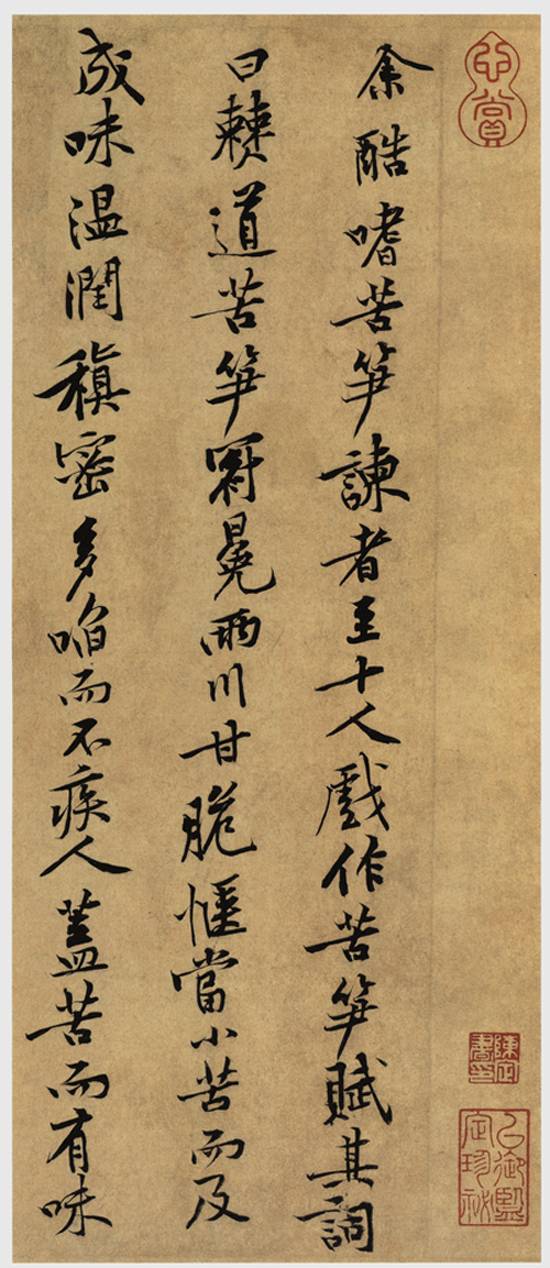 賞
陳定
書印
余酷嗜苦笋諫者至十人戲作苦笋賦其詞
曰僰道苦笋冠冕兩川甘脆愜當小苦而及
成味温潤稹密多啗而不疾人蓋苦而有味